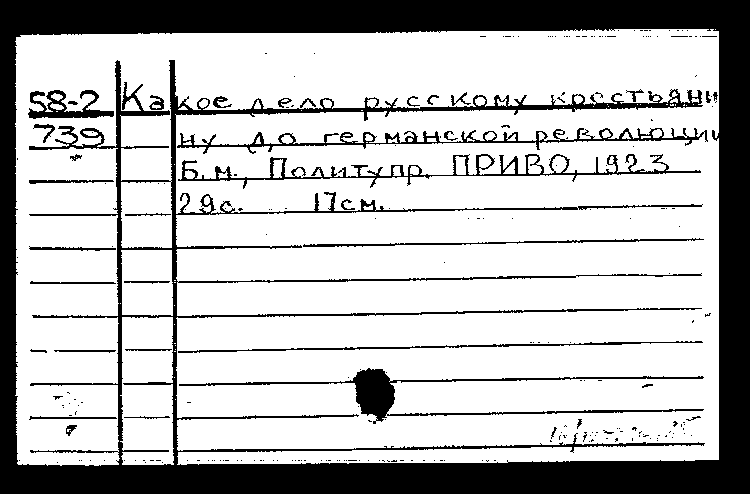 58-2 Какое дело русскому крестьяни
739 ну до германской революции
Б.м., Политупр. ПРИВО, 1923
29с. 17см.